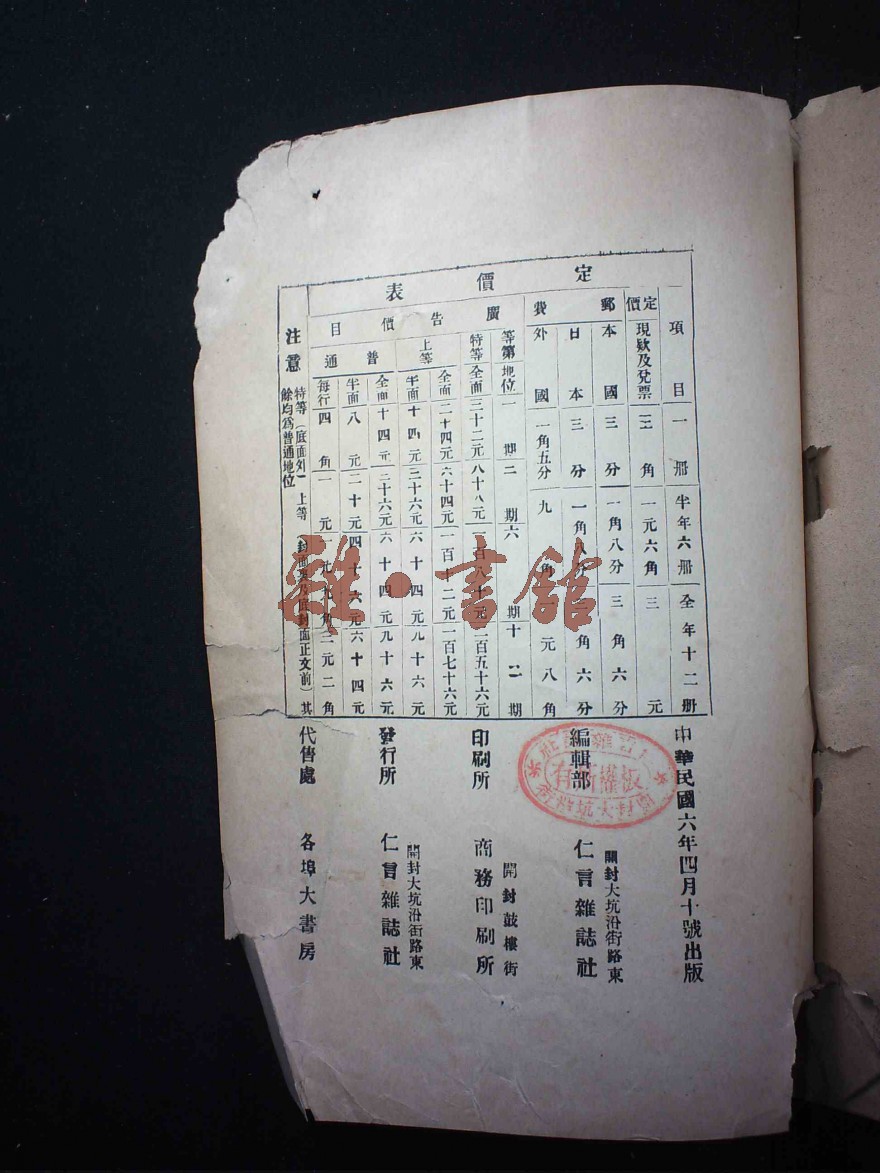 定價表
項目 一册 半年六册 全年十二册
定價 現欵及兌票 三角 一元六角 三元
郵費
本國 三分 一角八分 三角六分
日本 三分 一角八分 三角六分
外國 一角五分 九角 元八角
廣告價目
等第 地位 一期 二期 六期 十二期
特等 全面 三十二元 八十八元 一百八十元 二百五十六元
上等 全面 二十四元 六十四元 一百十二元 一百七十六元
半面 十四元 三十六元 六十四元 九十六元
普通 全面 十四元 三十六元 六十四元 九十六元
半面 八元 二十元 四十六元 六十四元
每行 四角 一元 一元九角 三元二角
注意 特等(底面外) 上等(封面裏及底封面正文前)其
餘均爲普通地位
中華民國六年四月十號出版
編輯部 開封大坑沿街路東
仁言雜誌社
印刷所 開封鼓樓街
商務印刷所
發行所 開封大坑沿街路東
仁言雜誌社
代售處 各埠大書房
板權所有
雜·書館